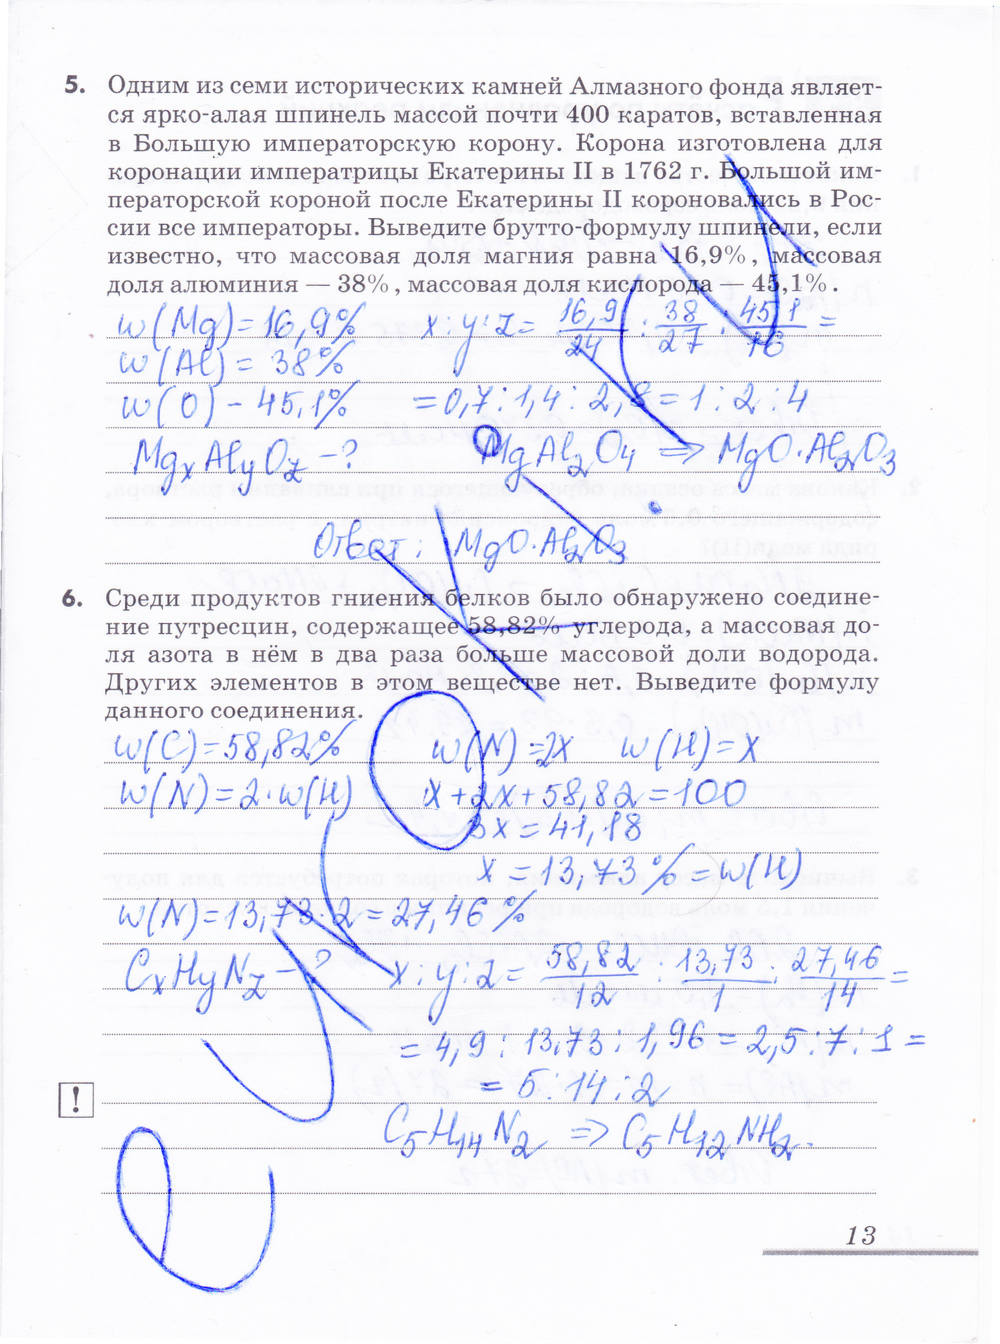 5. Одним из семи исторических камней Алмазного фонда являет-
ся ярко-алая шпинель массой почти 400 каратов, вставленная
в Большую императорскую корону. Корона изготовлена для
коронации императрицы Екатерины II в 1762 г. Большой им-
ператорской короной после Екатерины II короновались в Рос-
сии все императоры. Выведите брутто-формулу шпинели, если
известно, что массовая доля магния равна 16,9%, массовая
доля алюминия — 38%, массовая доля кислорода — 45,1%.
w(Mg)=16,9% x:y:z= 16,9/24 : 38/27 : 45,1/16 =
w(Al)=38%
w(O)-45,1% =0,7:1,4:2,8=1:2:4
MgxAlyOz-? MgAl2O4 => MgO·Al2O3
Ответ: MgO·Al2O3
6. Среди продуктов гниения белков было обнаружено соедине-
ние путресцин, содержащее 58,82% углерода, а массовая до-
ля азота в нём в два раза больше массовой доли водорода.
Других элементов в этом веществе нет. Выведите формулу
данного соединения.
w(C)=58,82% w(N)=2x w(H)=x
w(N)=2·w(H) x+2x+58,82=100
3x=41,18
x=13,73%=w(H)
w(N)=13,73·2=27,46%
CxHyNz-? x:y:z= 58,82/12 : 13,73/1 : 27,46/14 =
=4,9:13,73:1,96=2,5:7:1=
=5:14:2
C5H14N2 => C5H12NH2.
!
13